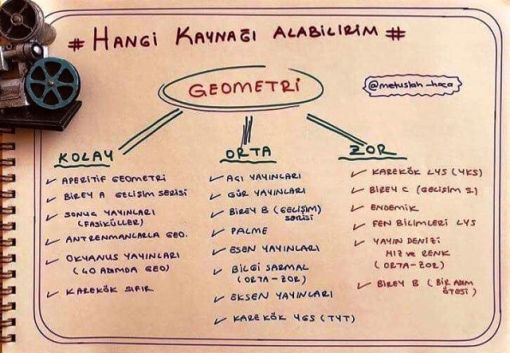 # HANGİ KAYNAĞI ALABİLİRİM #
GEOMETRİ
@metuslah_hoca
KOLAY
APERİTİF GEOMETRİ
BİREY A GELİŞİM SERİSİ
SONUÇ YAYINLARI
(FASİKÜLLER)
ANTRENMANLARLA GEO.
OKYANUS YAYINLARI
(40 ADIMDA GEO)
KAREKÖK SIFIR
ORTA
AÇI YAYINLARI
GÜR YAYINLARI
BİREY B (GELİŞİM)
SERİSİ
PALME
ESEN YAYINLARI
BİLGİ SARMAL
(ORTA-ZOR)
EKSEN YAYINLARI
KAREKÖK YGS (TYT)
ZOR
KAREKÖK LYS (YKS)
BİREY C (GELİŞİM S.)
ENDEMİK
FEN BİLİMLERİ LYS
YAYIN DENİZİ
HIZ VE RENK
(ORTA-ZOR)
BİREY B (BİR ADIM
ÖTESİ)